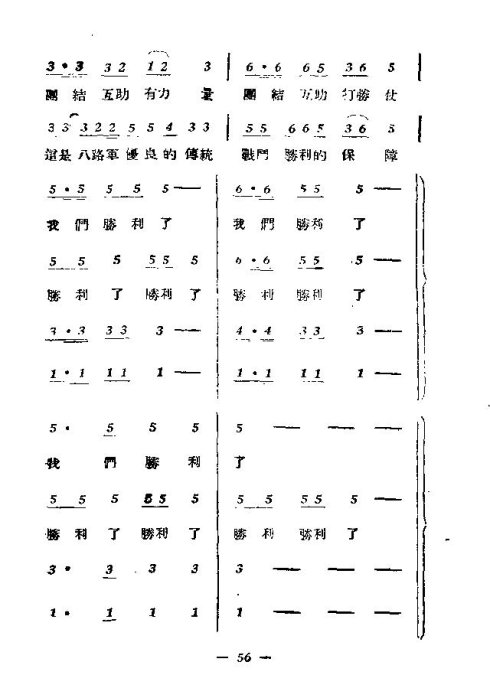 3・3 3 2 1 2 3 | 6・6 6 5 3 6 5 |
團 結 互助 有力 量 團 結 互助 打勝 仗
3 3 3 2 2 5 5 4 3 3 | 5 5 6 6 5 3 6 5
這是 八路軍 優良的 傳統 戰鬥 勝利的 保 障
5・5 5 5 5 — | 6・6 5 5 5 —
我 們 勝 利 了 我 們 勝利 了
5 5 5 5 5 5 | 6・6 5 5 5 —
勝 利 了 勝利 了 勝 利 勝利 了
3・3 3 3 3 — | 4・4 3 3 3 —
1・1 1 1 1 — | 1・1 1 1 1 —
5・ 5 5 5 | 5 — — —
我 們 勝 利 了
5 5 5 5 5 5 | 5 5 5 5 5 —
勝 利 了 勝利 了 勝 利 勝利 了
3・ 3 3 3 | 3 — — —
1・ 1 1 1 | 1 — — —
— 56 —